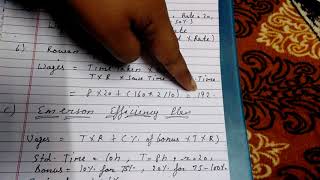 Rate = 20,
50%)
x Rate)
b) Rowan
Wages = Time Taken x
T x R x Save Time Time
= 8 x 20 + (160 x 2/10) = 192.
c) Emerson Efficiency Plan
Wages = T x R + (% of bonus x T x R)
Std. Time = 10h, T = 8h, R = 20,
Bonus = 10% for 75%, 20% for 75-100%